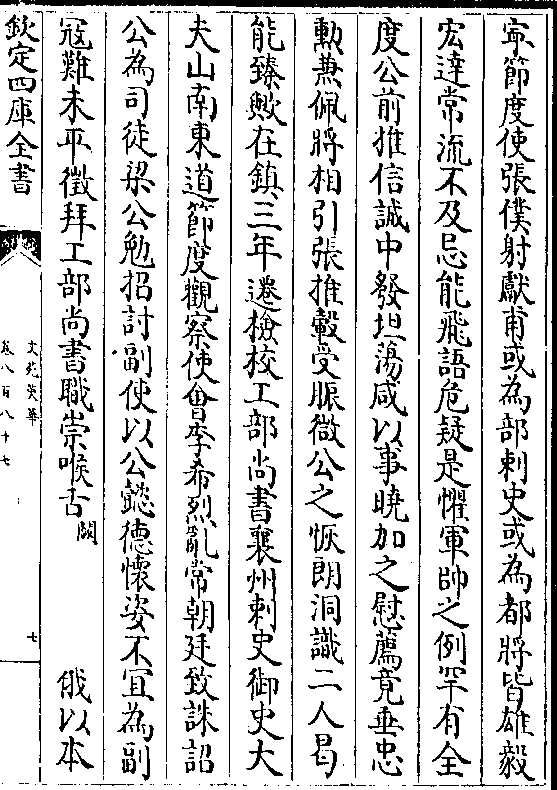 寧節度使張僕射獻甫或為部刺史或為都將皆雄毅
宏達常流不及忌能飛語危疑是懼軍帥之例罕有全
度公前推信誠中發坦蕩咸以事曉加之慰薦竟垂忠
勲兼佩將相引張推轂受脤微公之恢朗洞識二人曷
能臻歟在鎮三年遷檢校工部尚書襄州刺史御史大
夫山南東道節度觀察使會李希烈亂常朝廷致誅詔
公為司徒梁公勉招討副使以公懿德懷姿不宜為副
冦難未平徵拜工部尚書職崇喉舌闕　　　俄以本
欽定四庫全書
文苑英華
卷八百八十七
七